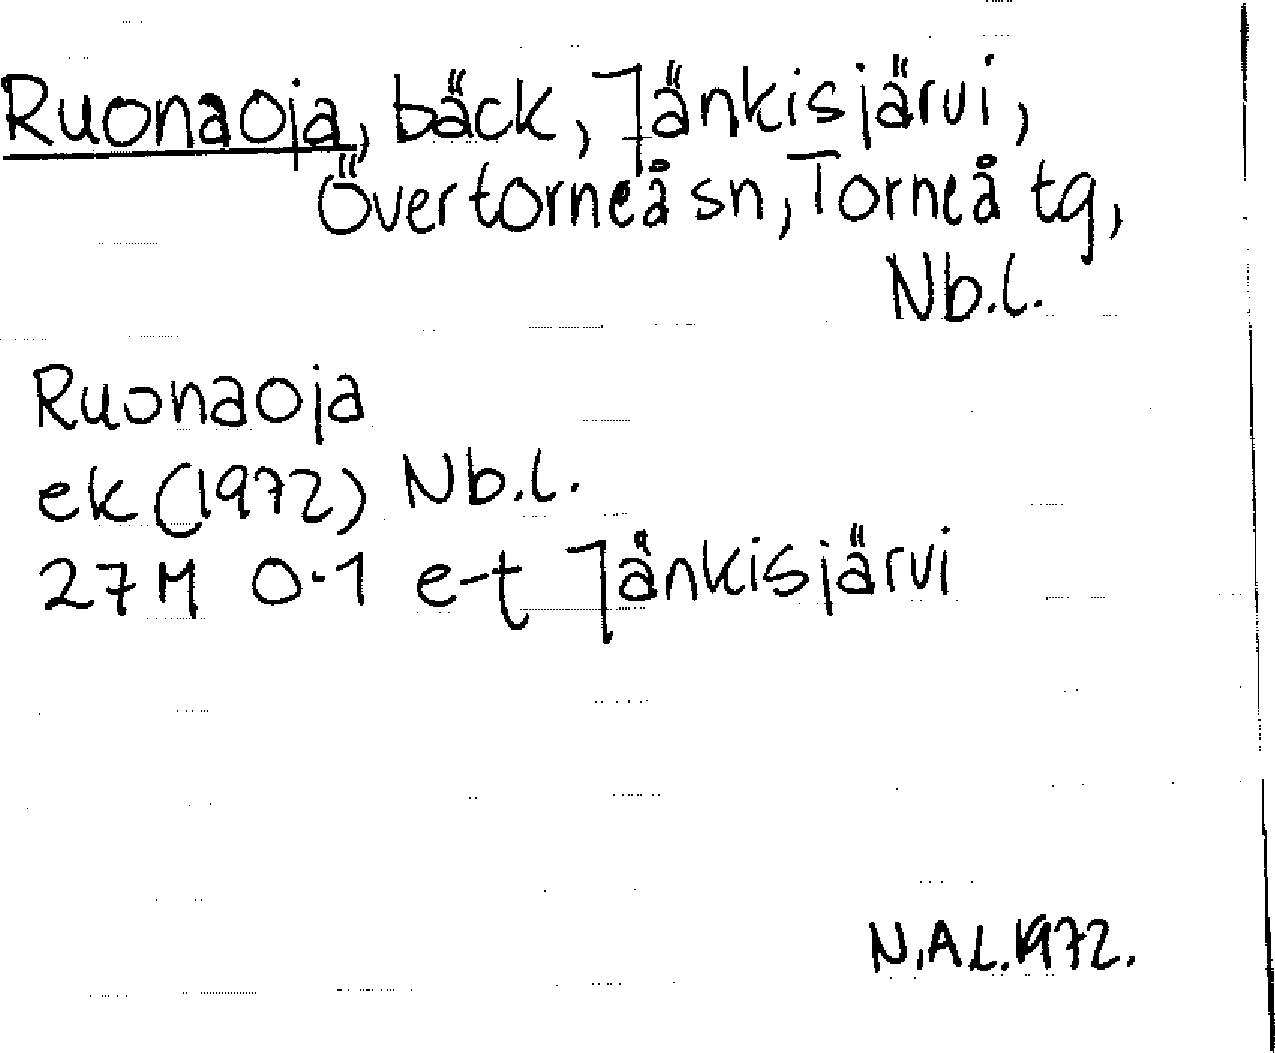 Ruonaoja, bäck, Jänkisjärvi,
Övertorneå sn, Torneå tg,
Nb.l.
Ruonaoja
ek (1972) Nb.l.
27M 0-1 e-t Jänkisjärvi
N.A.L. 1972.